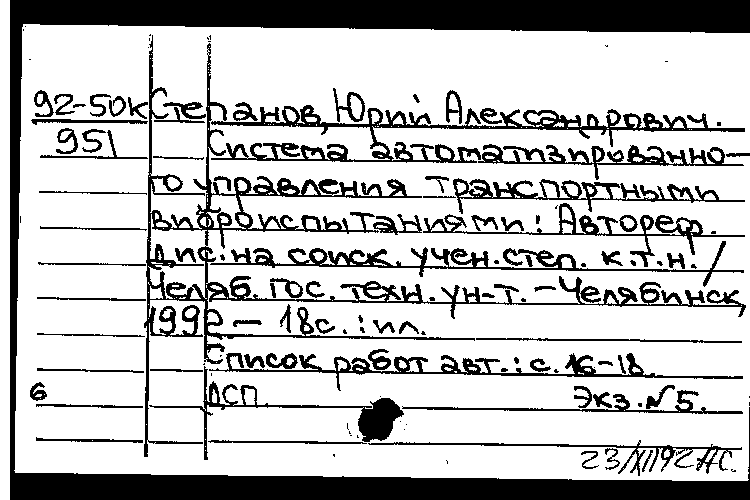 92-50к Степанов, Юрий Александрович.
951 Система автоматизированно-
го управления транспортными
виброиспытаниями: Автореф.
Дис. на соиск. учен. степ. к.т.н. /
Челяб. гос. техн. ун-т. – Челябинск,
1992 – 18с.: ил.
Список работ авт.: с. 16-18.
6 ДСП. Экз. №5.
23/XII92 АС.